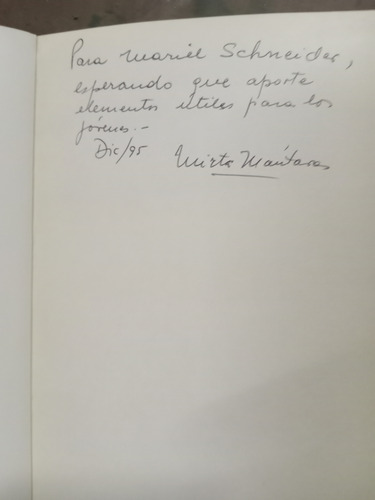 Para Mariel Schneider,
esperando que aporte
elementos útiles para los
jóvenes.-
Dic/95
Mirta Mántaras